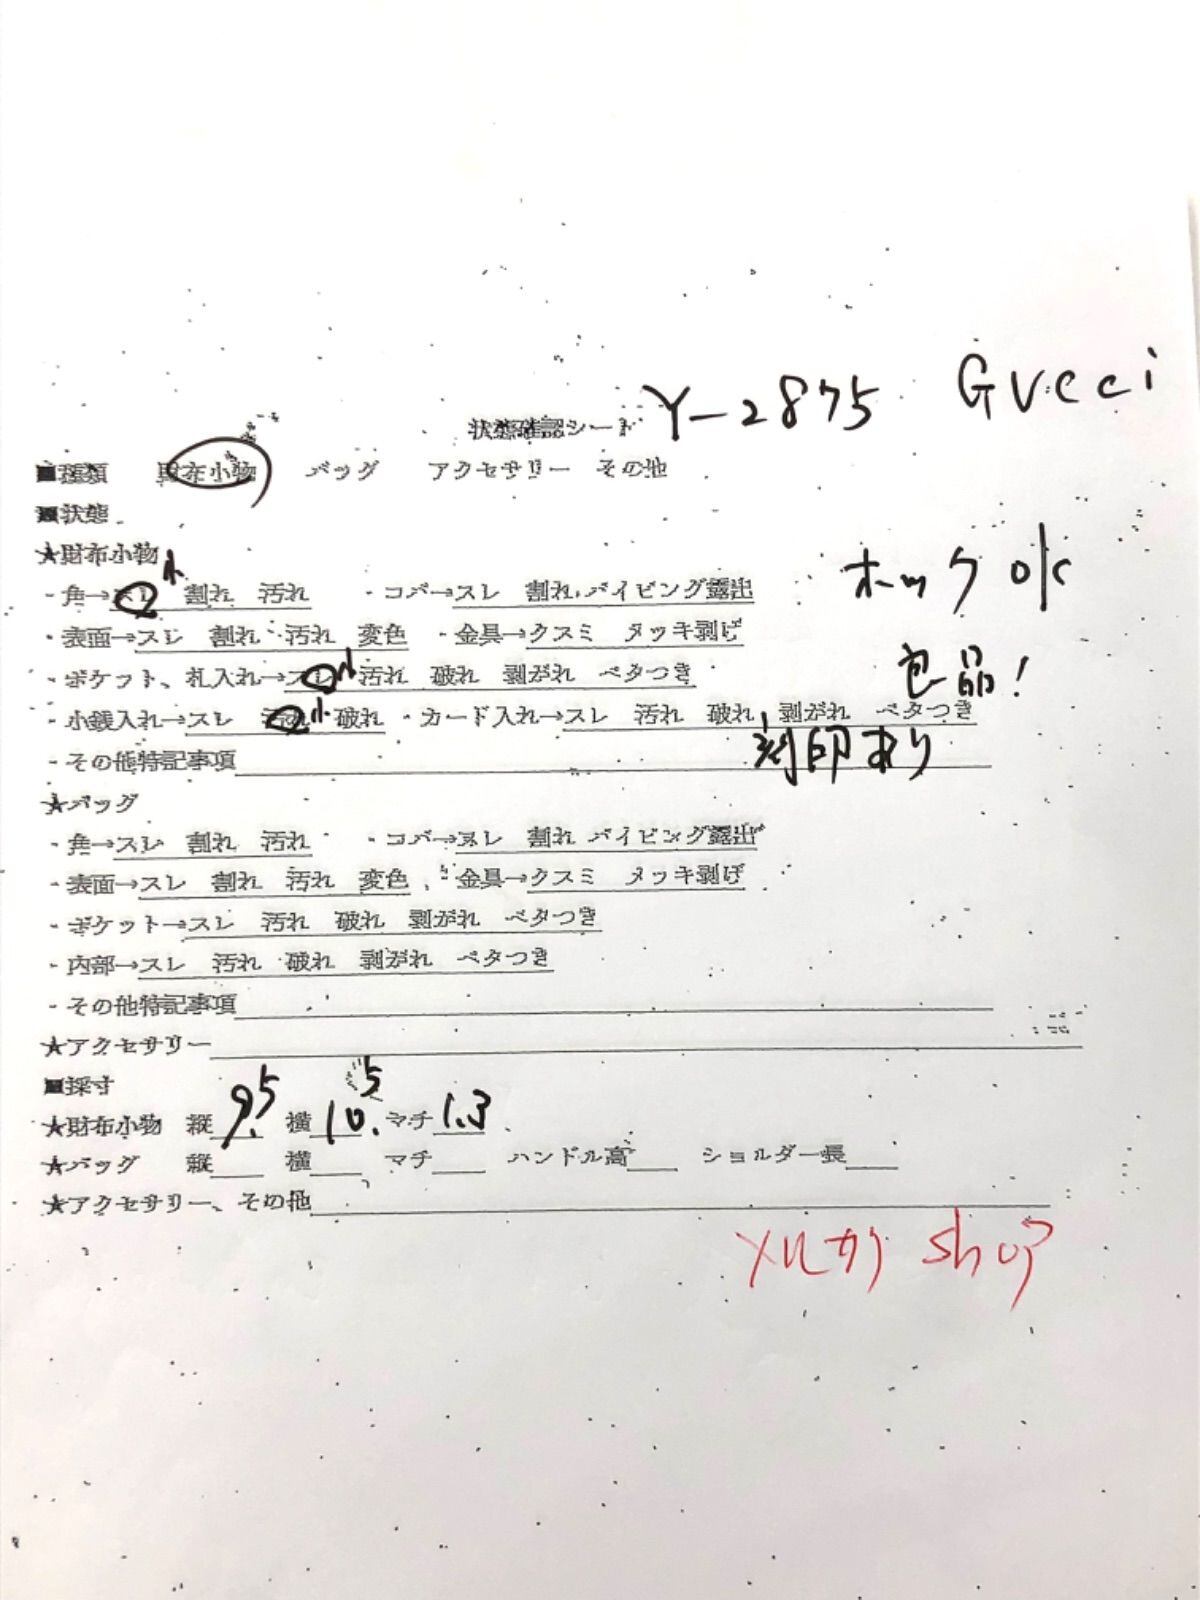 状態確認シート Y-2875 Gucci
■種類 財布小物 バッグ アクセサリー その他
■状態
★財布小物
ホックok
・角→スレ 小 割れ 汚れ ・コバ→スレ 割れ パイピング露出
・表面→スレ 割れ 汚れ 変色 ・金具→クスミ メッキ剥げ
良品!
・ポケット、札入れ→スレ 小 汚れ 破れ 剥がれ ベタつき
・小銭入れ→スレ 汚れ 小 破れ ・カード入れ→スレ 汚れ 破れ 剥がれ ベタつき
・その他特記事項 刻印あり
★バッグ
・角→スレ 割れ 汚れ ・コバ→スレ 割れ パイピング露出
・表面→スレ 割れ 汚れ 変色 ・金具→クスミ メッキ剥げ
・ポケット→スレ 汚れ 破れ 剥がれ ベタつき
・内部→スレ 汚れ 破れ 剥がれ ベタつき
・その他特記事項
★アクセサリー
■採寸
★財布小物 縦 9.5 横 10.5 マチ 1.3
★バッグ 縦 横 マチ ハンドル高 ショルダー長
★アクセサリー、その他
shop